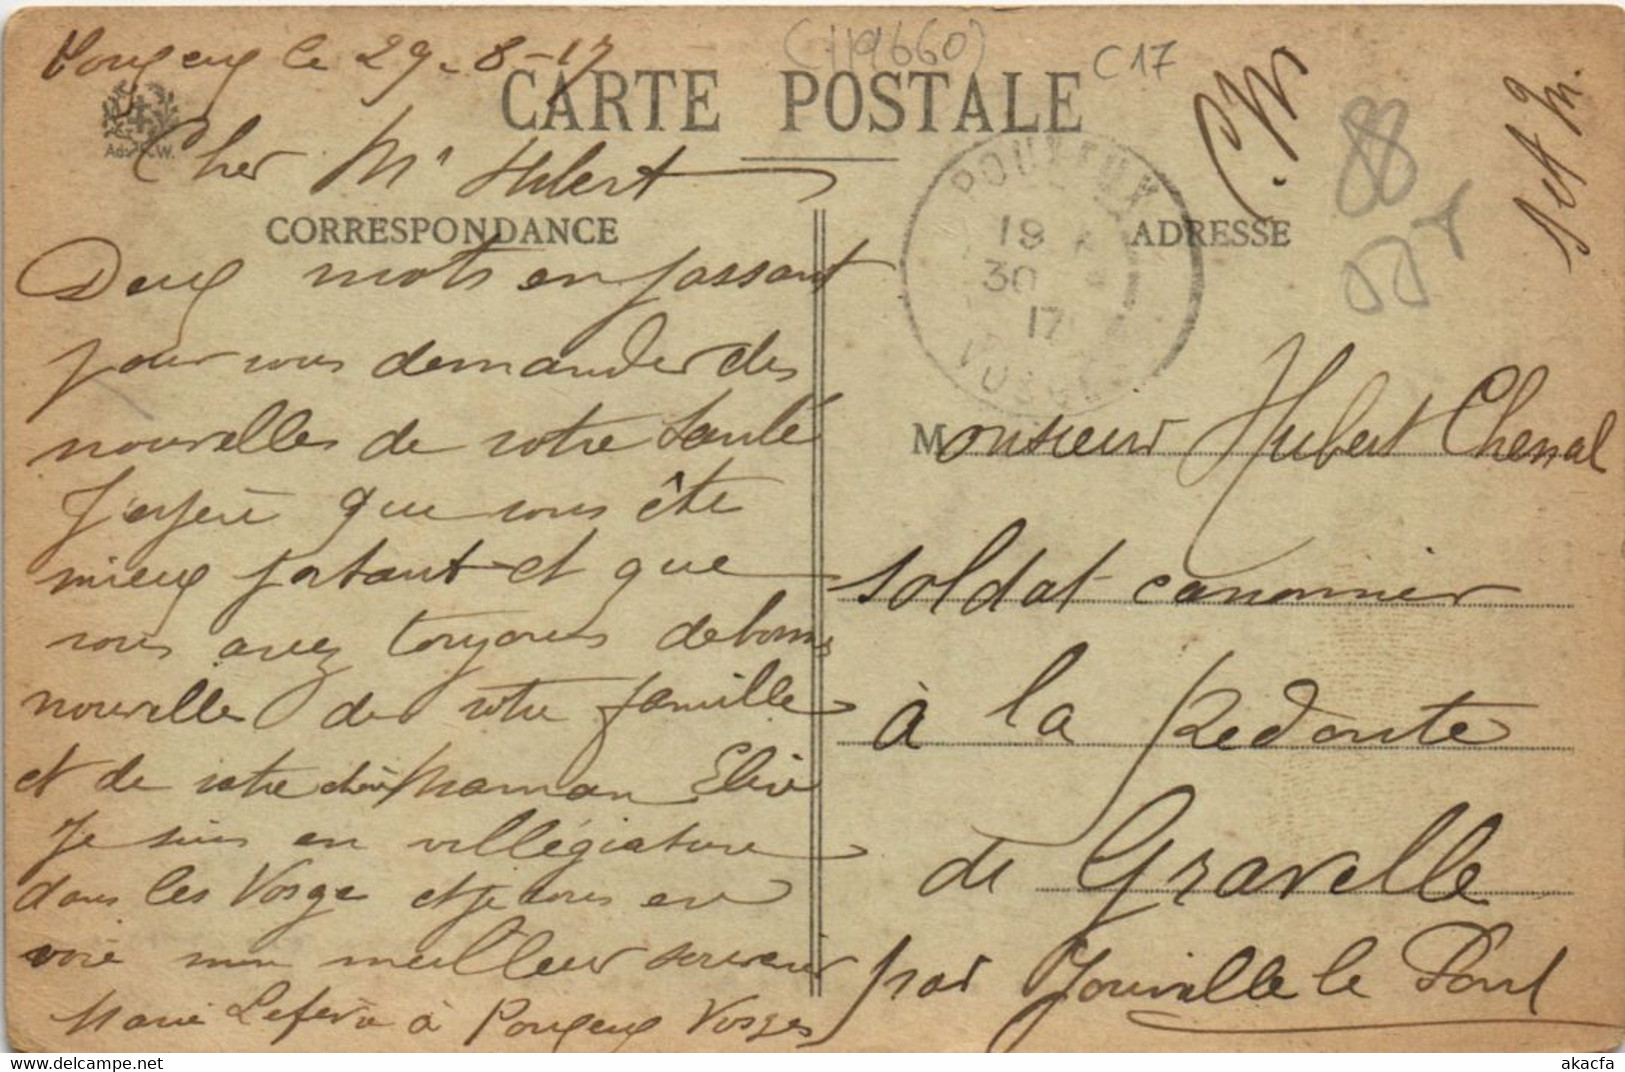 Pougeux le 29-8-17
(119660)
C17
CARTE POSTALE
Adv C.W.
C.M.
88
S et M.
Cher Mr Hubert
CORRESPONDANCE
ADRESSE
POUXEUX
19
30
17
VOSGES
Deux mots en passant
pour vous demander des
nouvelles de votre Santé
J'espère que vous ête
mieux portant et que
vous avez toujours de bonnes
nouvelles de votre famille
et de votre chère Maman
Je suis en villégiature
dans les Vosge et je vous en
voie mon meilleur souvenir
Marie Lefèvre à Pougeux Vosges
Monsieur Hubert Chenal
soldat canonnier
à la Redoute
de Gravelle
par Joinville le Pont
akacfa